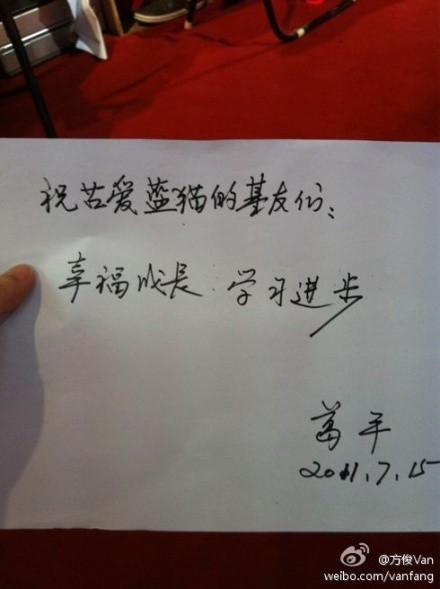 祝苦爱蓝猫的基友们：
幸福成长 学习进步
葛平
2011.7.15
@方俊Van
weibo.com/vanfang